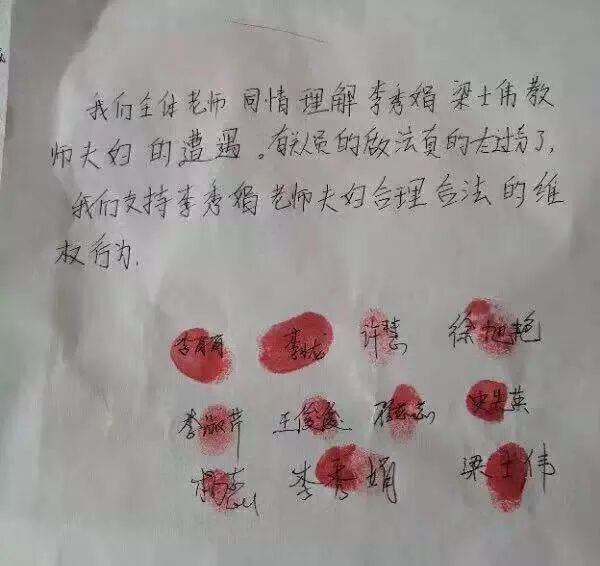 我们全体老师同情理解李秀娟梁士伟教
师夫妇的遭遇。有关人员的做法真的太过分了,
我们支持李秀娟老师夫妇合理合法的维
权行为.
许慧 徐旭艳
李淑芹 王俊俊 史先英
李秀娟 梁士伟